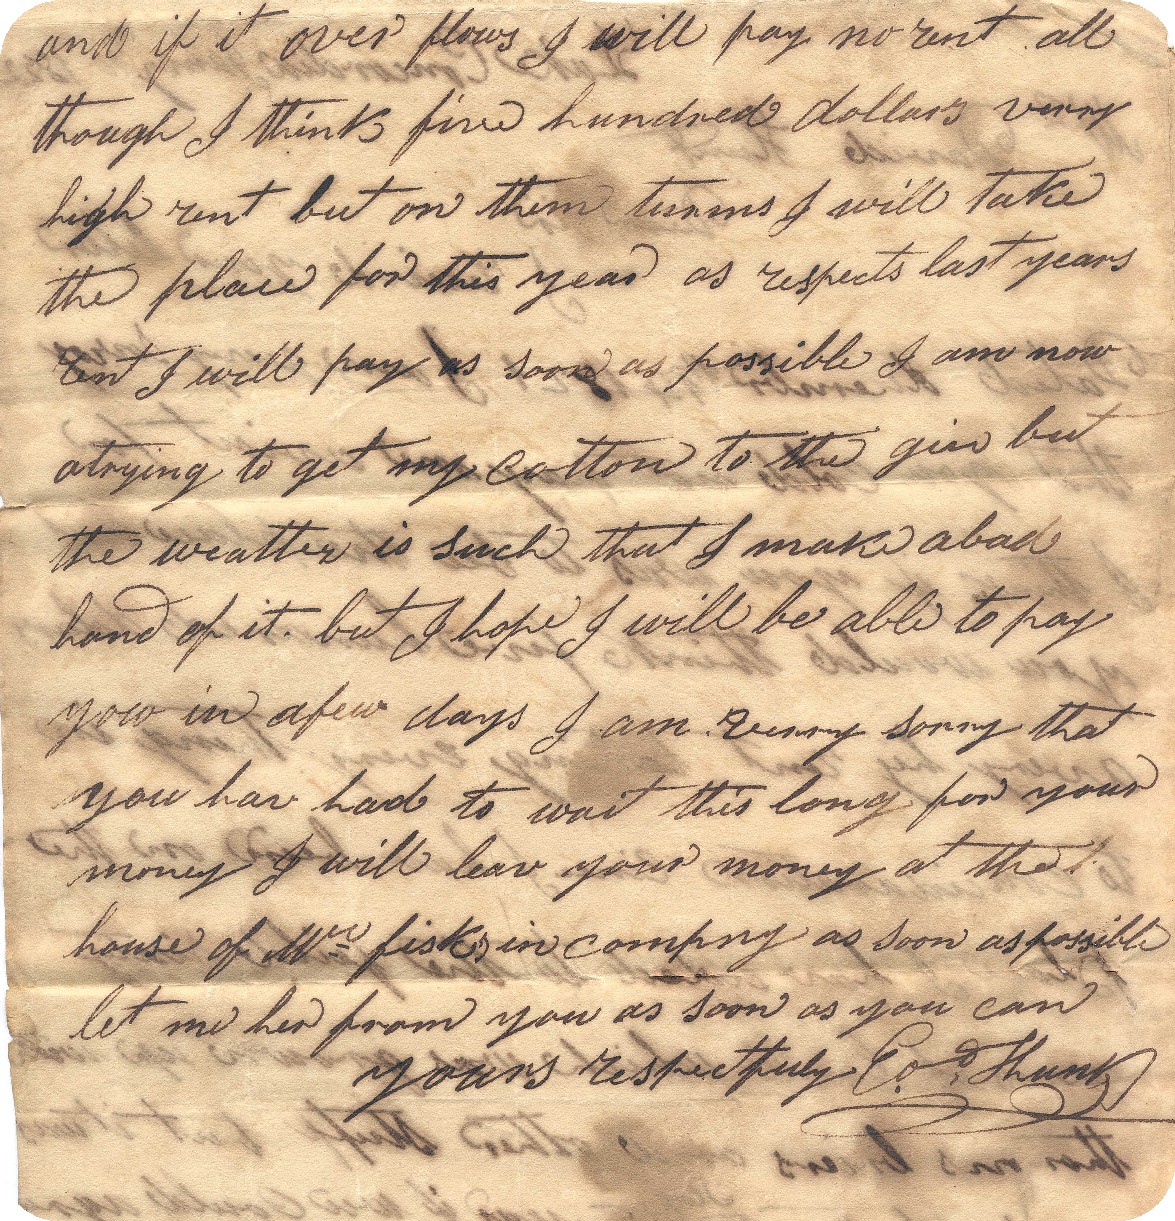 and if it over flows I will pay no rent all
though I think five hundred dollars verry
high rent but on them turms I will take
the place for this year as respects last years
rent I will pay as soon as possible I am now
atrying to get my cotton to the gin but
the weatter is such that I make abad
hand of it. but I hope I will be able to pay
yow in afew days I am verry sorry that
you hav had to wait this long for your
money I will leav your money at the
house of fisks in compny as soon as possible
let me her from you as soon as you can
yours respectfuly